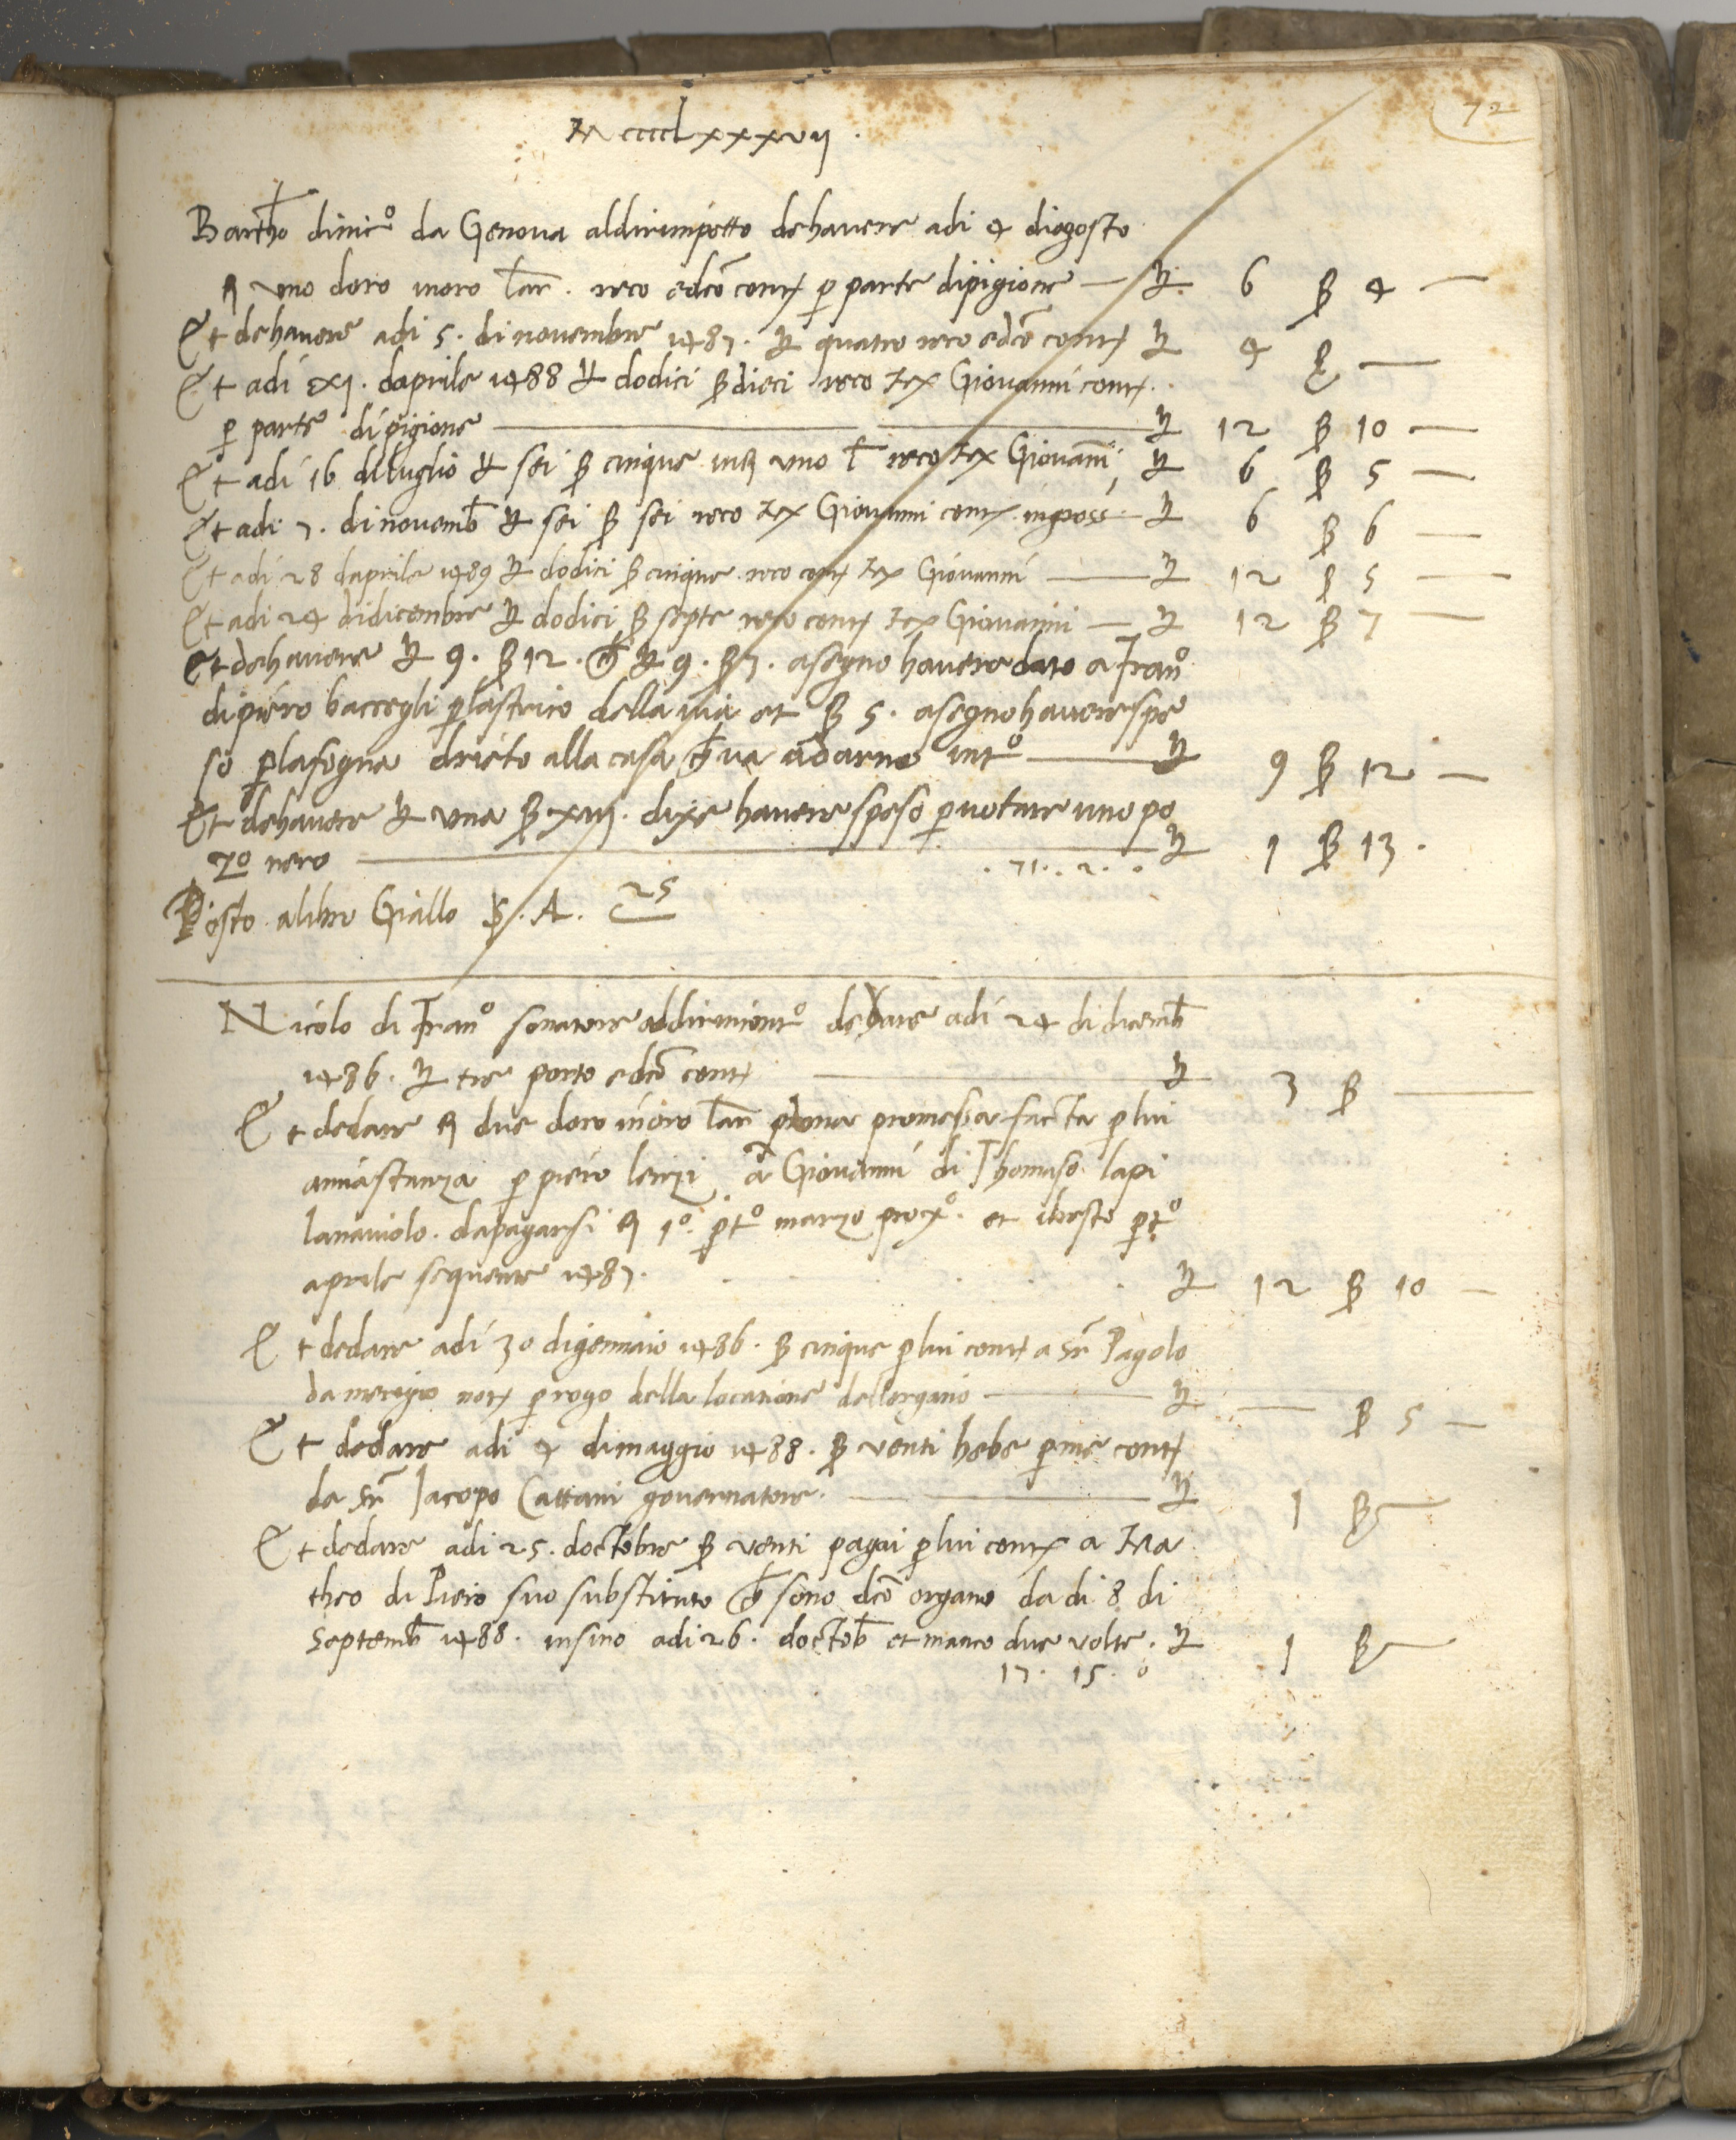 72
Mcccclxxxvij.
Bartho dinico da Genova aldirimpetto dehavere adi 4 diagosto
uno doro inoro lar. reco edco contj p parte dipigione — £ 6 ß 4 —
Et dehavere adi 5. dinovembre 1487. £ quatro reco edco contj £ 4 ß —
Et adi xxj. daprile 1488 £ dodici ß dieci reco Giovanni contj.
p parte dipigione — £ 12 ß 10 —
Et adi 16 diluglio £ sei ß cinque uno l reco Giovanni £ 6 ß 5 —
Et adi 7. dinovemb £ sei ß sei reco Giovanni contj — £ 6 ß 6 —
Et adi 28 daprile 1489 £ dodici ß cinque reco contj Giovanni — £ 12 ß 5 —
Et adi 24 didicembre £ dodici ß septe reco contj Giovanni — £ 12 ß 7 —
Et dehavere £ 9. ß 12. £ 9. ß 7. asegno havere dato a Frano
dipiero baccegli plastrico della via et ß 5. asegno havere spe
so plafogna drieto alla casa ch va adarno into — £ 9 ß 12 —
Et dehavere £ una ß xiij. dixe havere speso p votare uno po
zo nero — £ 1 ß 13.
. 71. . 2. .
Posto alibro Giallo S. A. 25
Nicolo di Frano sonatore aldirimento dedare adi 24 di dicemb
1486. £ tre porto edco contj — £ 3 ß —
Et dedare due doro inoro lar puna promessa facta plui
amiastanza p piero lenzi a Giovanni di Thomaso lapi
lanaiuolo. dapagarsi 1o. pto marzo proxo. et ilresto pto
aprile sequente 1487. . . . . £ 12 ß 10 —
Et dedare adi 30 digennaio 1486. ß cinque plui contj a Sr Pagolo
da notj progo della locatione dellorgano — £ — ß 5 —
Et dedare adi 4 dimaggio 1488. ß venti hebe pme contj
da Sr Jacopo Cattani governatore. — £ 1 ß —
Et dedare adi 25. doctobre ß venti pagai plui contj a Ma
theo di Piero suo substituto ch sono dco organo da di 8 di
Septemb 1488. insino adi 26. doctob et manco due volte. £ 1 ß —
17. 15. 0